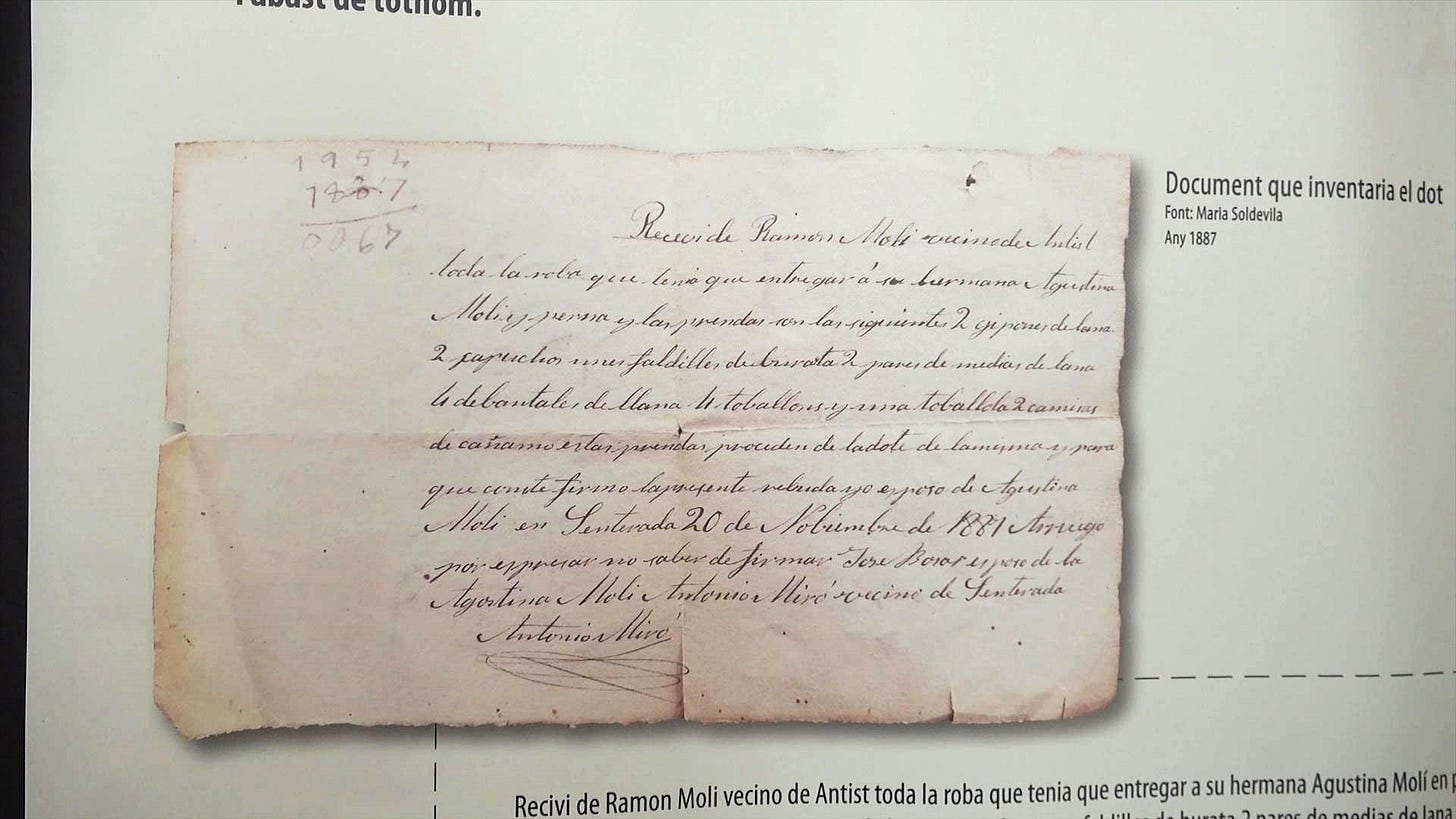 l'abast de tothom.
1954
1887
0067
Document que inventaria el dot
Font: Maria Soldevila
Any 1887
Recevi de Ramon Moli vecino de Antist
toda la roba que tenia que entregar á su hermana Agustina
Moli y perna y las prendas son las siguientes 2 gipones de lana
2 capuchos unes faldilles de burata 2 pares de medias de lana
4 debantales de llana 4 toballons y una toballola 2 camisas
de cañamo estas prendas proceden de la dote de la misma y para
que conste firmo la presente rebuda yo esposo de Agustina
Moli en Senterada 20 de Nobiembre de 1887 Arruego
por espresar no saber de firmar Jose esposo de la
Agostina Moli Antonio Miró vecino de Senterada
Antonio Miró
Recivi de Ramon Moli vecino de Antist toda la roba que tenia que entregar a su hermana Agustina Molí en
faldilles de burata 2 pares de medias de lana